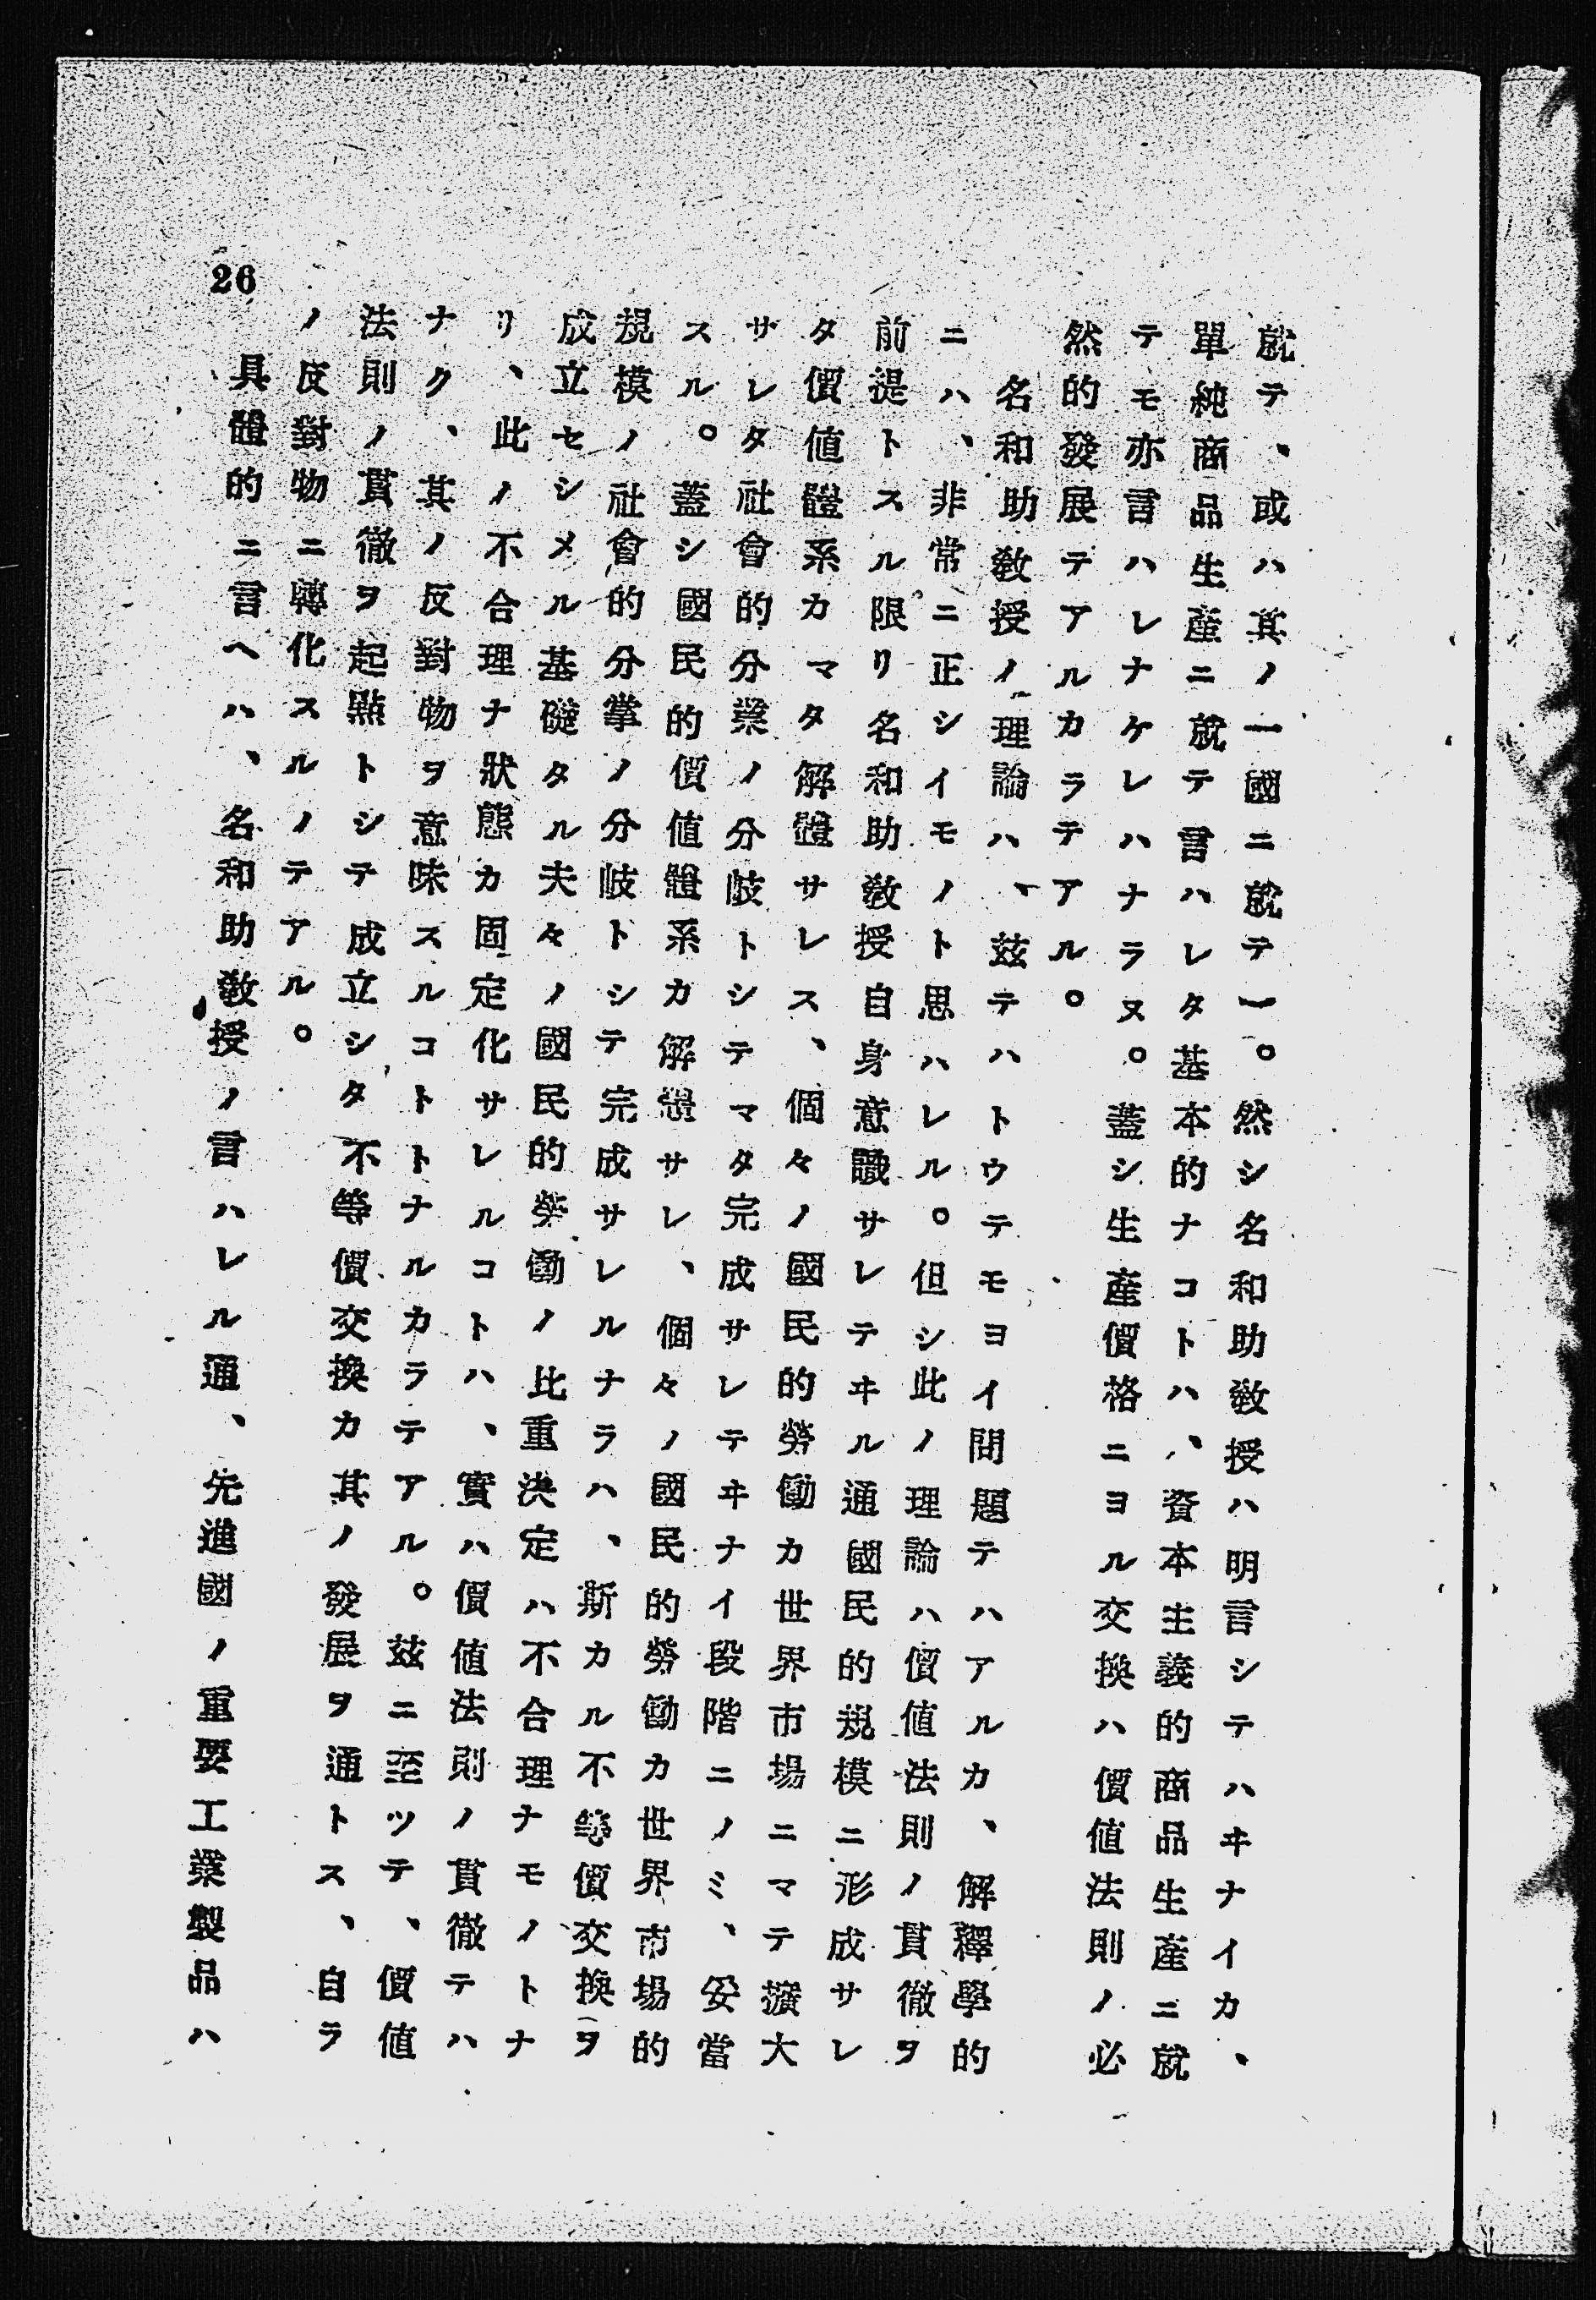 就テ、或ハ其ノ一國ニ就テ―。然シ名和助敎授ハ明言シテハヰナイカ、
單純商品生産ニ就テ言ハレタ基本的ナコトハ、資本主義的商品生産ニ就
テモ亦言ハレナケレハナラヌ。蓋シ生産價格ニヨル交換ハ價値法則ノ必
然的發展テアルカラテアル。
名和助敎授ノ理論ハ、玆テハトウテモヨイ問題テハアルカ、解釋學的
ニハ、非常ニ正シイモノト思ハレル。但シ此ノ理論ハ價値法則ノ貫徹ヲ
前提トスル限リ名和助敎授自身意識サレテヰル通國民的規模ニ形成サレ
タ價値體系カマタ解體サレス、個々ノ國民的勞働カ世界市場ニマテ擴大
サレタ社會的分業ノ分岐トシテマタ完成サレテヰナイ段階ニノミ、妥當
スル。蓋シ國民的價値體系カ解體サレ、個々ノ國民的勞働カ世界市場的
規模ノ社會的分掌ノ分岐トシテ完成サレルナラハ、斯カル不等價交換ヲ
成立セシメル基礎タル夫々ノ國民的勞働ノ比重決定ハ不合理ナモノトナ
リ、此ノ不合理ナ狀態カ固定化サレルコトハ、實ハ價値法則ノ貫徹テハ
ナク、其ノ反對物ヲ意味スルコトトナルカラテアル。玆ニ至ツテ、價値
法則ノ貫徹ヲ起點トシテ成立シタ不等價交換カ其ノ發展ヲ通トス、自ラ
ノ反對物ニ轉化スルノテアル。
具體的ニ言ヘハ、名和助敎授ノ言ハレル通、先進國ノ重要工業製品ハ
26